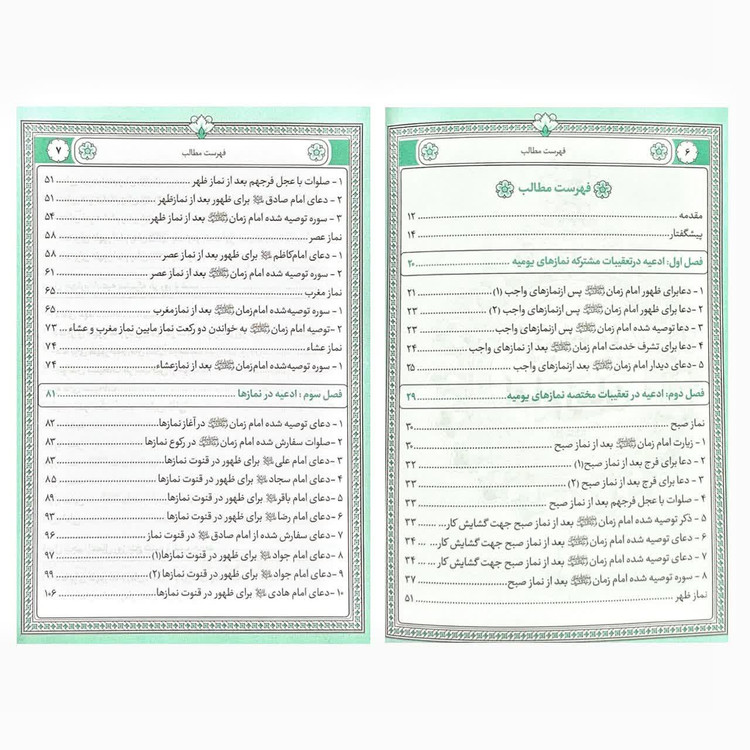 ۶
فهرست مطالب
فهرست مطالب
مقدمه ۱۲
پیشگفتار ۱۴
فصل اول: ادعیه درتعقیبات مشترکه نمازهای یومیه ۲۰
۱- دعابرای ظهور امام زمان ﷻ پس ازنمازهای واجب (۱) ۲۱
۲- دعابرای ظهور امام زمان پس ازنمازهای واجب (۲) ۲۳
۳- دعا توصیه شده امام زمان پس ازنمازهای واجب ۲۳
۴- دعا برای تشرف خدمت امام زمان بعد از نمازهای واجب ۲۴
۵- دعای دیدار امام زمان بعد ازنمازهای واجب ۲۵
فصل دوم: ادعیه در تعقیبات مختصه نمازهای یومیه ۲۹
نماز صبح ۳۰
۱- زیارت امام زمان بعد از نماز صبح ۳۰
۲- دعا برای فرج بعد از نماز صبح(۱) ۳۲
۳- دعا برای فرج بعد از نماز صبح (۲) ۳۳
۴- صلوات با عجل فرجهم بعد از نماز صبح ۳۳
۵- ذکر توصیه شده امام زمان بعد از نماز صبح جهت گشایش کار... ۳۳
۶- دعای توصیه شده امام زمان بعد از نماز صبح جهت گشایش کار... ۳۴
۷- دعای توصیه شده امام زمان بعد از نماز صبح جهت گشایش کار... ۳۴
۸- سوره توصیه شده امام زمان بعد از نماز صبح ۳۷
نماز ظهر ۵۱
۷
فهرست مطالب
۱- صلوات با عجل فرجهم بعد از نماز ظهر ۵۱
۲- دعای امام صادق برای ظهور بعد از نمازظهر ۵۱
۳- سوره توصیه شده امام زمان بعد از نماز ظهر ۵۴
نماز عصر ۵۸
۱- دعای امام‌کاظم برای ظهور بعد از نماز عصر ۵۸
۲- سوره توصیه شده امام زمان بعد از نماز عصر ۶۱
نماز مغرب ۶۵
۱- سوره توصیه‌شده امام‌زمان بعد از نمازمغرب ۶۵
۲-توصیه امام زمان به خواندن دو رکعت نماز مابین نماز مغرب و عشاء ۷۳
نماز عشاء ۷۴
۱- سوره توصیه‌شده امام‌زمان بعد از نمازعشاء ۷۴
فصل سوم: ادعیه در نمازها ۸۱
۱- دعای توصیه شده امام زمان درآغاز نمازها ۸۲
۲-صلوات سفارش شده امام زمان در رکوع نمازها ۸۳
۳-دعای امام علی برای ظهور در قنوت نمازها ۸۳
۴-دعای امام سجاد برای ظهور در قنوت نمازها ۸۵
۵- دعای امام باقر برای ظهور در قنوت نمازها ۸۹
۶- دعای امام رضا برای ظهور در قنوت نمازها ۹۳
۷-دعای سفارش شده از امام صادق در قنوت نماز ۹۶
۸- دعای امام جواد برای ظهور در قنوت نمازها(۱) ۹۷
۹-دعای امام جواد برای ظهور در قنوت نمازها (۲) ۹۹
۱۰-دعای امام هادی برای ظهور در قنوت نمازها ۱۰۶